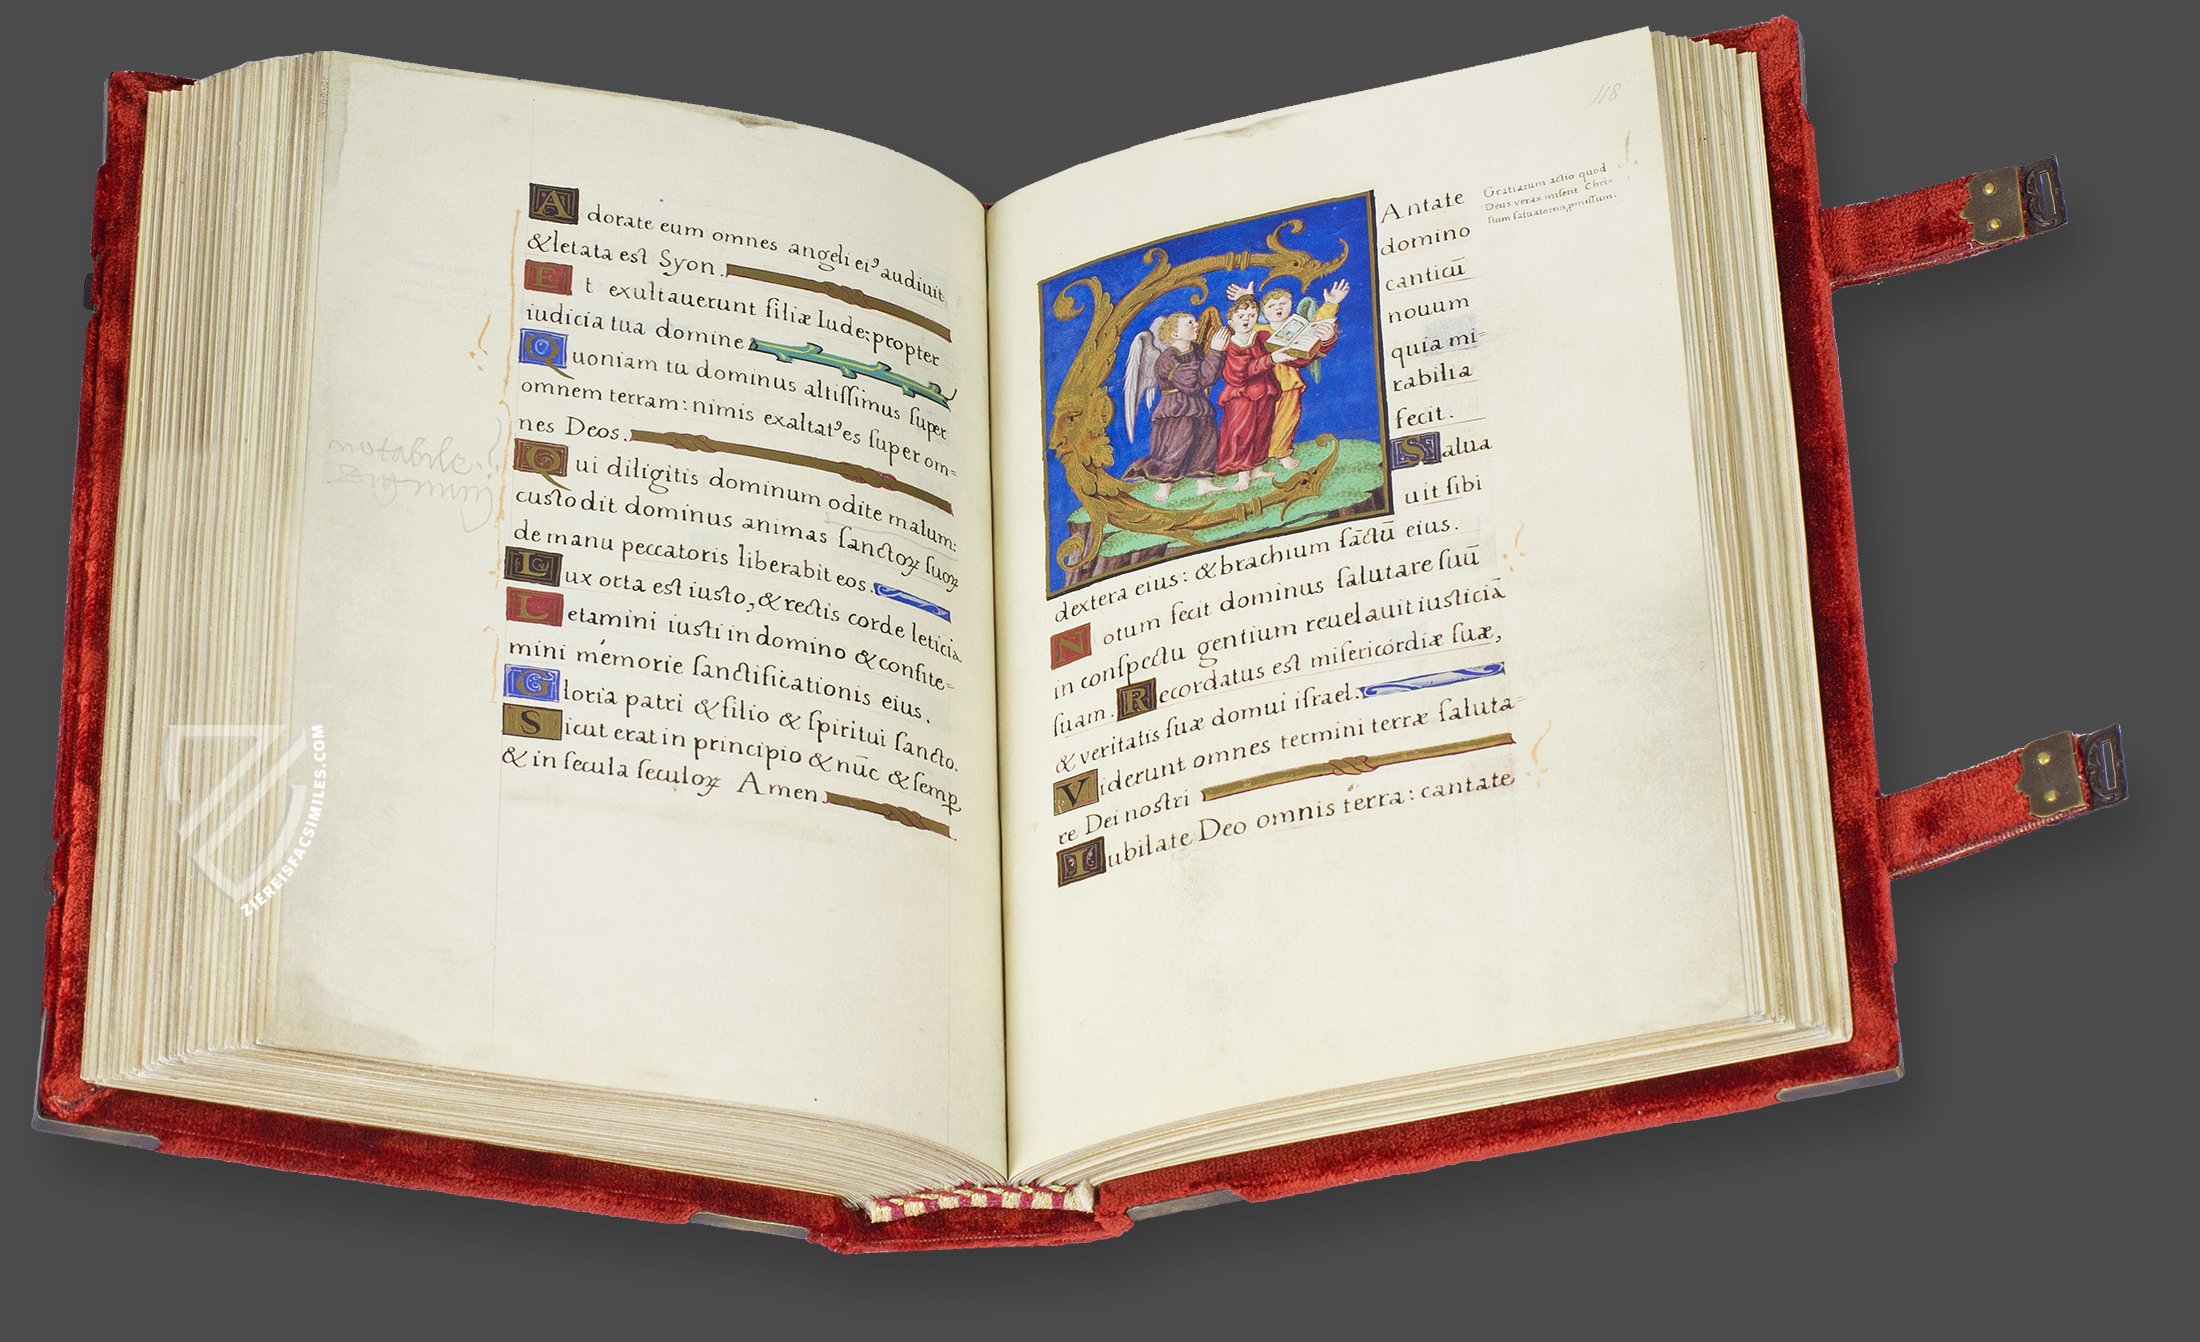 Adorate eum omnes angeli eiꝰ audiuit
&letata est Syon.
Et exultauerunt filiæ Iude: propter
iudicia tua domine
Quoniam tu dominus altiſſimus ſuper
omnem terram: nimis exaltatꝰ es ſuper om=
nes Deos.
Qui diligitis dominum odite malum:
custodit dominus animas ſanctoꝝ ſuoꝝ
de manu peccatoris liberabit eos.
Lux orta est iusto, & rectis corde leticia
Letamini iusti in domino & confite=
mini memorie ſanctificationis eius.
Gloria patri & filio & ſpiritui ſancto.
Sicut erat in principio & nūc & ſemꝑ
& in ſecula ſeculoꝝ Amen.
118
CAntate
domino
canticū
nouum
quia mi=
rabilia
fecit.
Salua
uit ſibi
dextera eius: & brachium ſāctū eius.
Notum fecit dominus ſalutare ſuū
in conſpectu gentium reuelauit iusticiā
ſuam. Recordatus est miſericordiæ ſuæ,
& veritatis ſuæ domui iſrael.
Viderunt omnes termini terræ ſaluta=
re Dei nostri
Iubilate Deo omnis terra: cantate
Gratiarum actio quod
Deus verax miſerit Chri=
stum ſaluatorem ꝓmiſſum.
notabile
ZIEREISFACSIMILES.COM